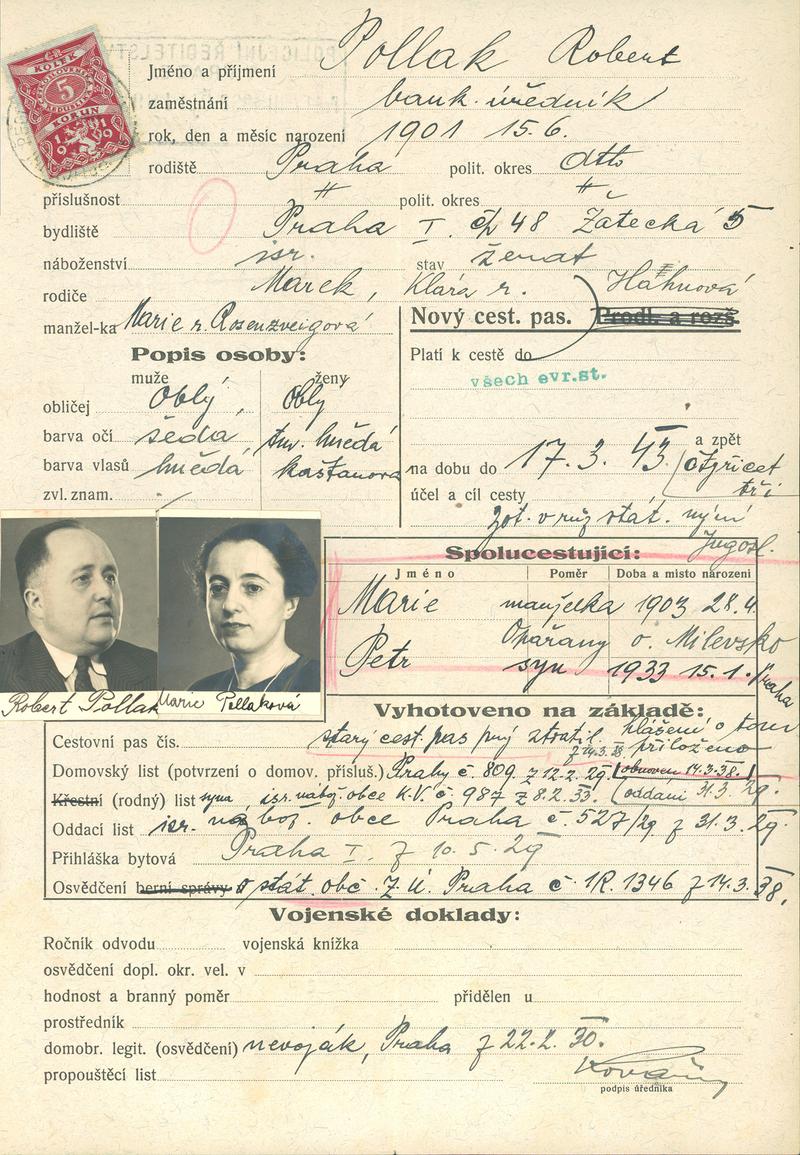 ČR.
KOLEK
ČESKOSLOVENSKÁ
REPUBLIKA
5
KORUN
1919
POLICEJNÍ ŘEDITELSTV
Jméno a příjmení Pollak Robert
zaměstnání bank. úředník
rok, den a měsíc narození 1901 15.6.
rodiště Praha polit. okres dtto
příslušnost " polit. okres "
bydliště Praha I. čp 48 Žatecká 5
náboženství isr. stav ženat
rodiče Marek, Klára r. Hahnová
manžel-ka Marie r. Rosenzveigová
Nový cest. pas. Prodl. a rozš.
Popis osoby:
Platí k cestě do
všech evr.st.
muže ženy
obličej Oblý, Oblý
barva očí šedá tm. hnědá
barva vlasů hnědá kaštanová
zvl. znam.
na dobu do 17.3.43 a zpět
(čtyřicet
tři
účel a cíl cesty
zot. v růz. stát. nyní
Jugosl.
Spolucestující:
Jméno Poměr Doba a místo narození
Marie manželka 1903 28.4.
Opařany o. Milevsko
Petr syn 1933 15.1. Praha
Robert Pollak Marie Pollaková
Vyhotoveno na základě:
Cestovní pas čís. starý cest. pas prý ztratil. hlášení o tom
přiloženo
Domovský list (potvrzení o domov. přísluš.) Prahy č. 809. z 12.2. 29. (obnoven 14.3.38.)
Křestní (rodný) list syna, isr. nábož. obce K.V. č. 987 z 8.2. 33. (oddáni 31.3. 29.
Oddací list isr. nábož. obce Praha č. 527/29 z 31.3. 29.
Přihláška bytová Praha I. z 10.5.29
Osvědčení berní správy o stát. obč. Z.Ú. Praha č. 1R. 1346 z 14.3. 38.
Vojenské doklady:
Ročník odvodu vojenská knížka
osvědčení dopl. okr. vel. v
hodnost a branný poměr přidělen u
prostředník
domobr. legit. (osvědčení) nevoják, Praha z 22.2. 30.
propouštěcí list
podpis úředníka